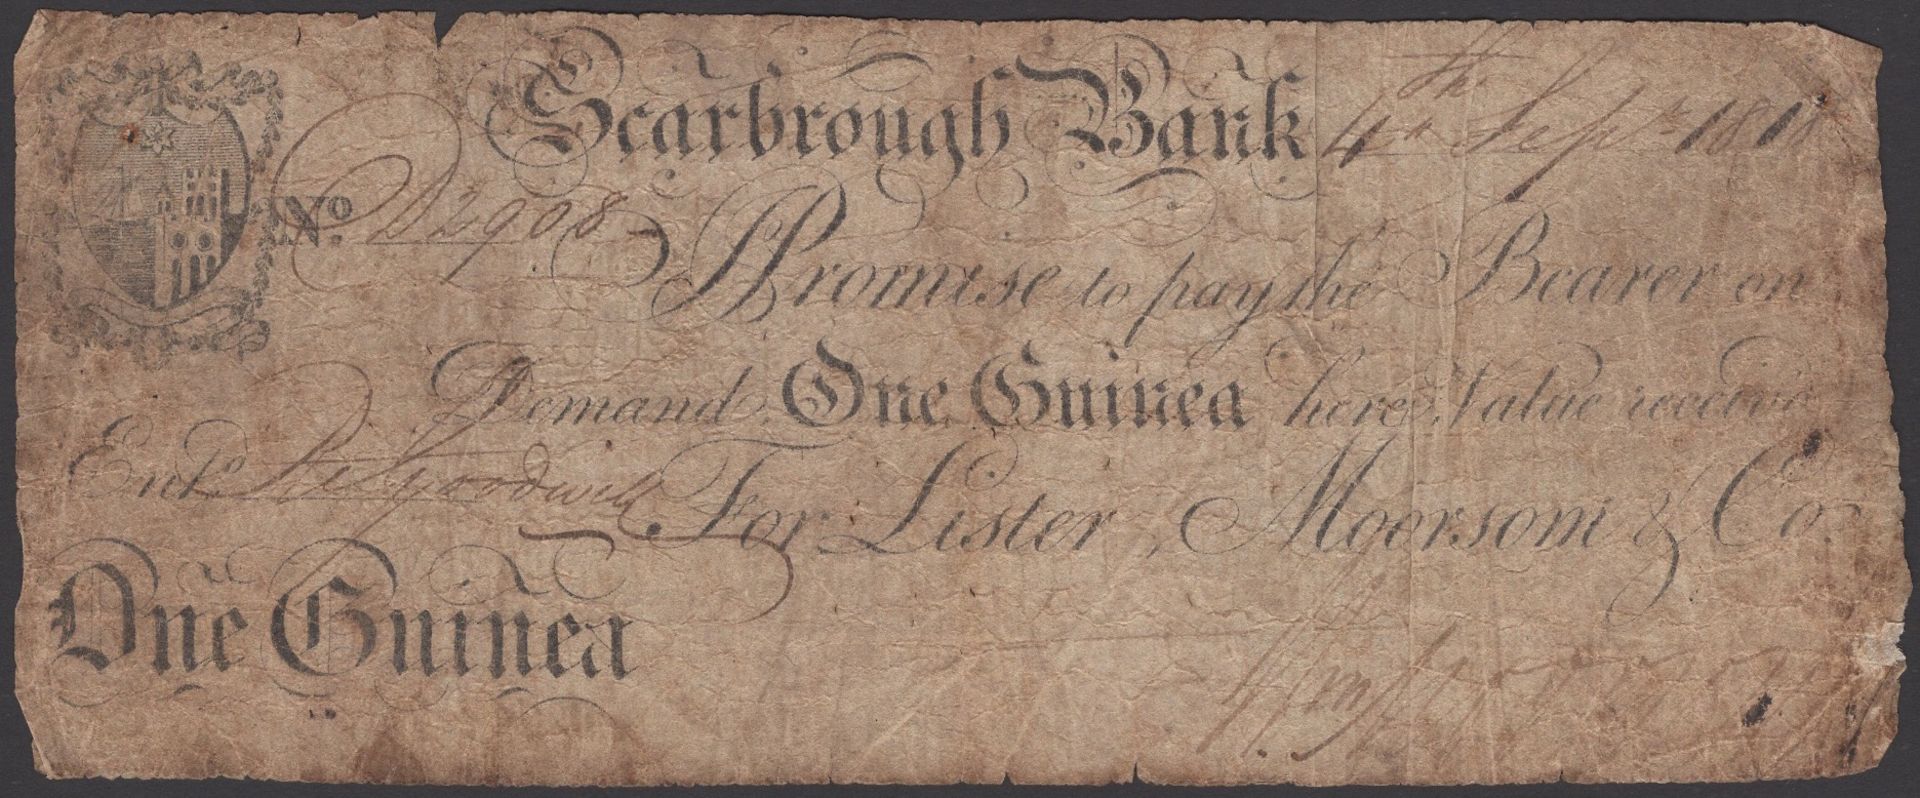 Scarbrough Bank 4th Septr. 1818
No. D2908
I Promise to pay the Bearer on
Demand One Guinea here Value receiv'd
Entd. For Lister, Moorsom & Co.
One Guinea